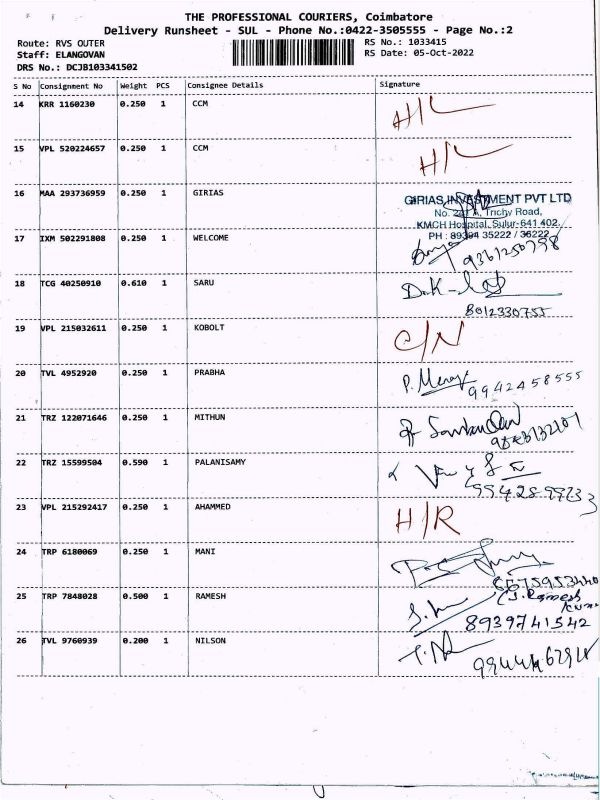 THE PROFESSIONAL COURIERS, Coimbatore
Delivery Runsheet - SUL - Phone No.:0422-3505555 - Page No.:2
Route: RVS OUTER RS No.: 1033415
Staff: ELANGOVAN RS Date: 05-Oct-2022
DRS No.: DCJB103341502
S No Consignment No Weight PCS Consignee Details Signature
14 KRR 1160230 0.250 1 CCM H/L
15 VPL 520224657 0.250 1 CCM H/L
16 MAA 293736959 0.250 1 GIRIAS
GIRIAS INVESTMENT PVT LTD
Trichy Road,
KMCH Hospital, Sulur-641 402.
PH : 89394 35222 / 36222
17 IXM 502291808 0.250 1 WELCOME
9361250798
18 TCG 40250910 0.610 1 SARU
8012330755
19 VPL 215032611 0.250 1 KOBOLT C/N
20 TVL 4952920 0.250 1 PRABHA
9942458555
21 TRZ 122071646 0.250 1 MITHUN
22 TRZ 15599504 0.590 1 PALANISAMY
23 VPL 215292417 0.250 1 AHAMMED H/R
24 TRP 6180069 0.250 1 MANI
25 TRP 7848028 0.500 1 RAMESH
(J. Ramesh
8939741542
26 TVL 9760939 0.200 1 NILSON